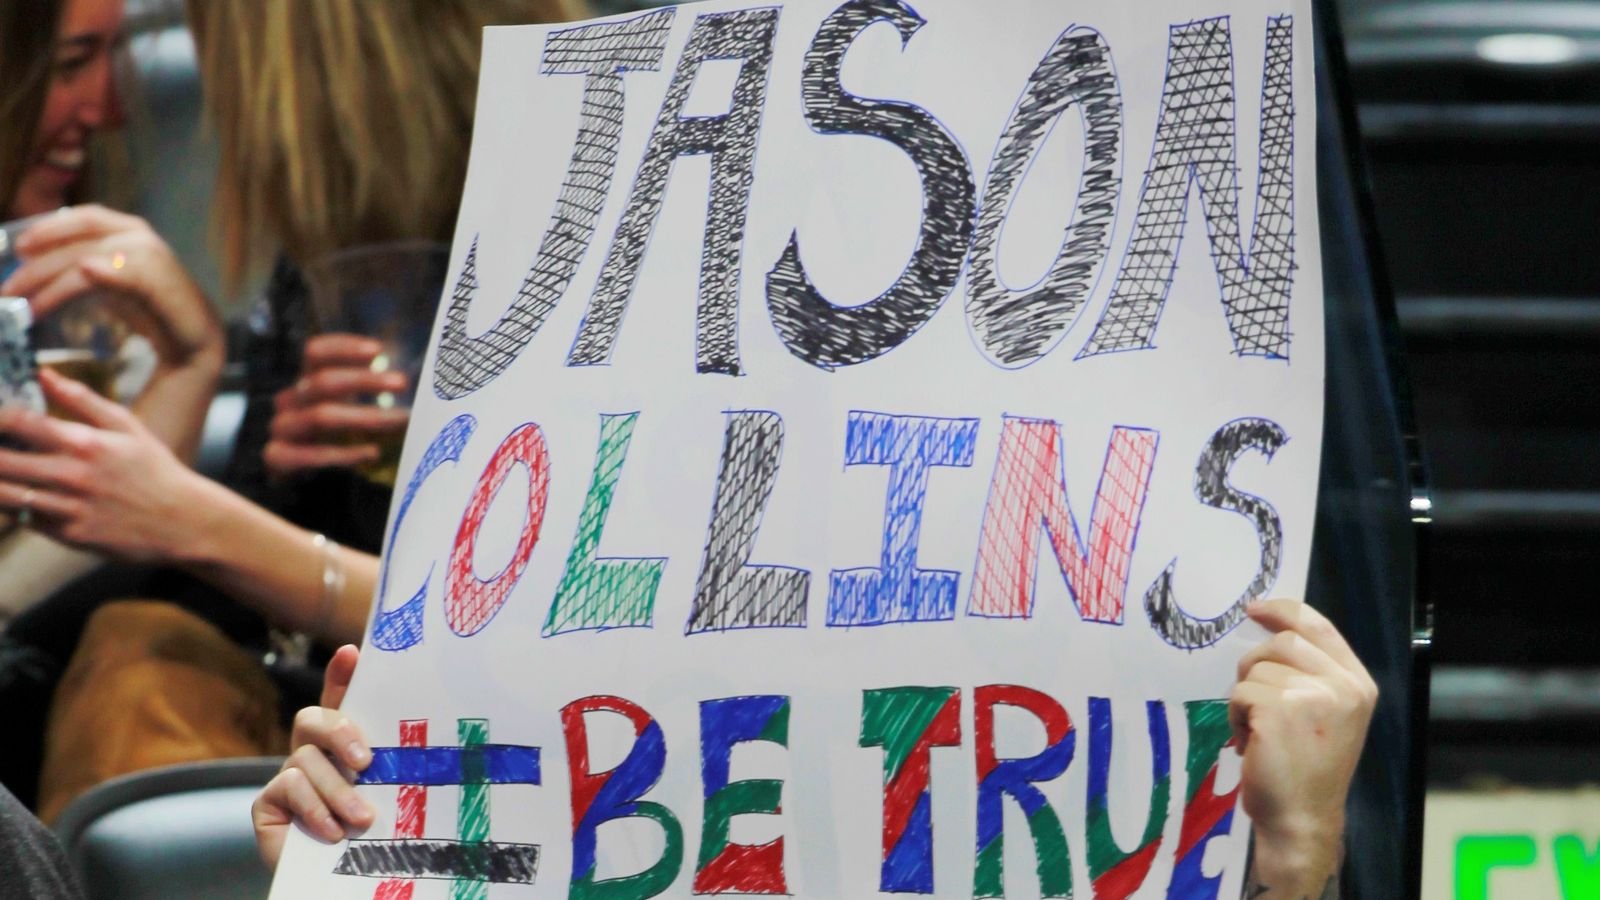 JASON
COLLINS
#BE TRUE